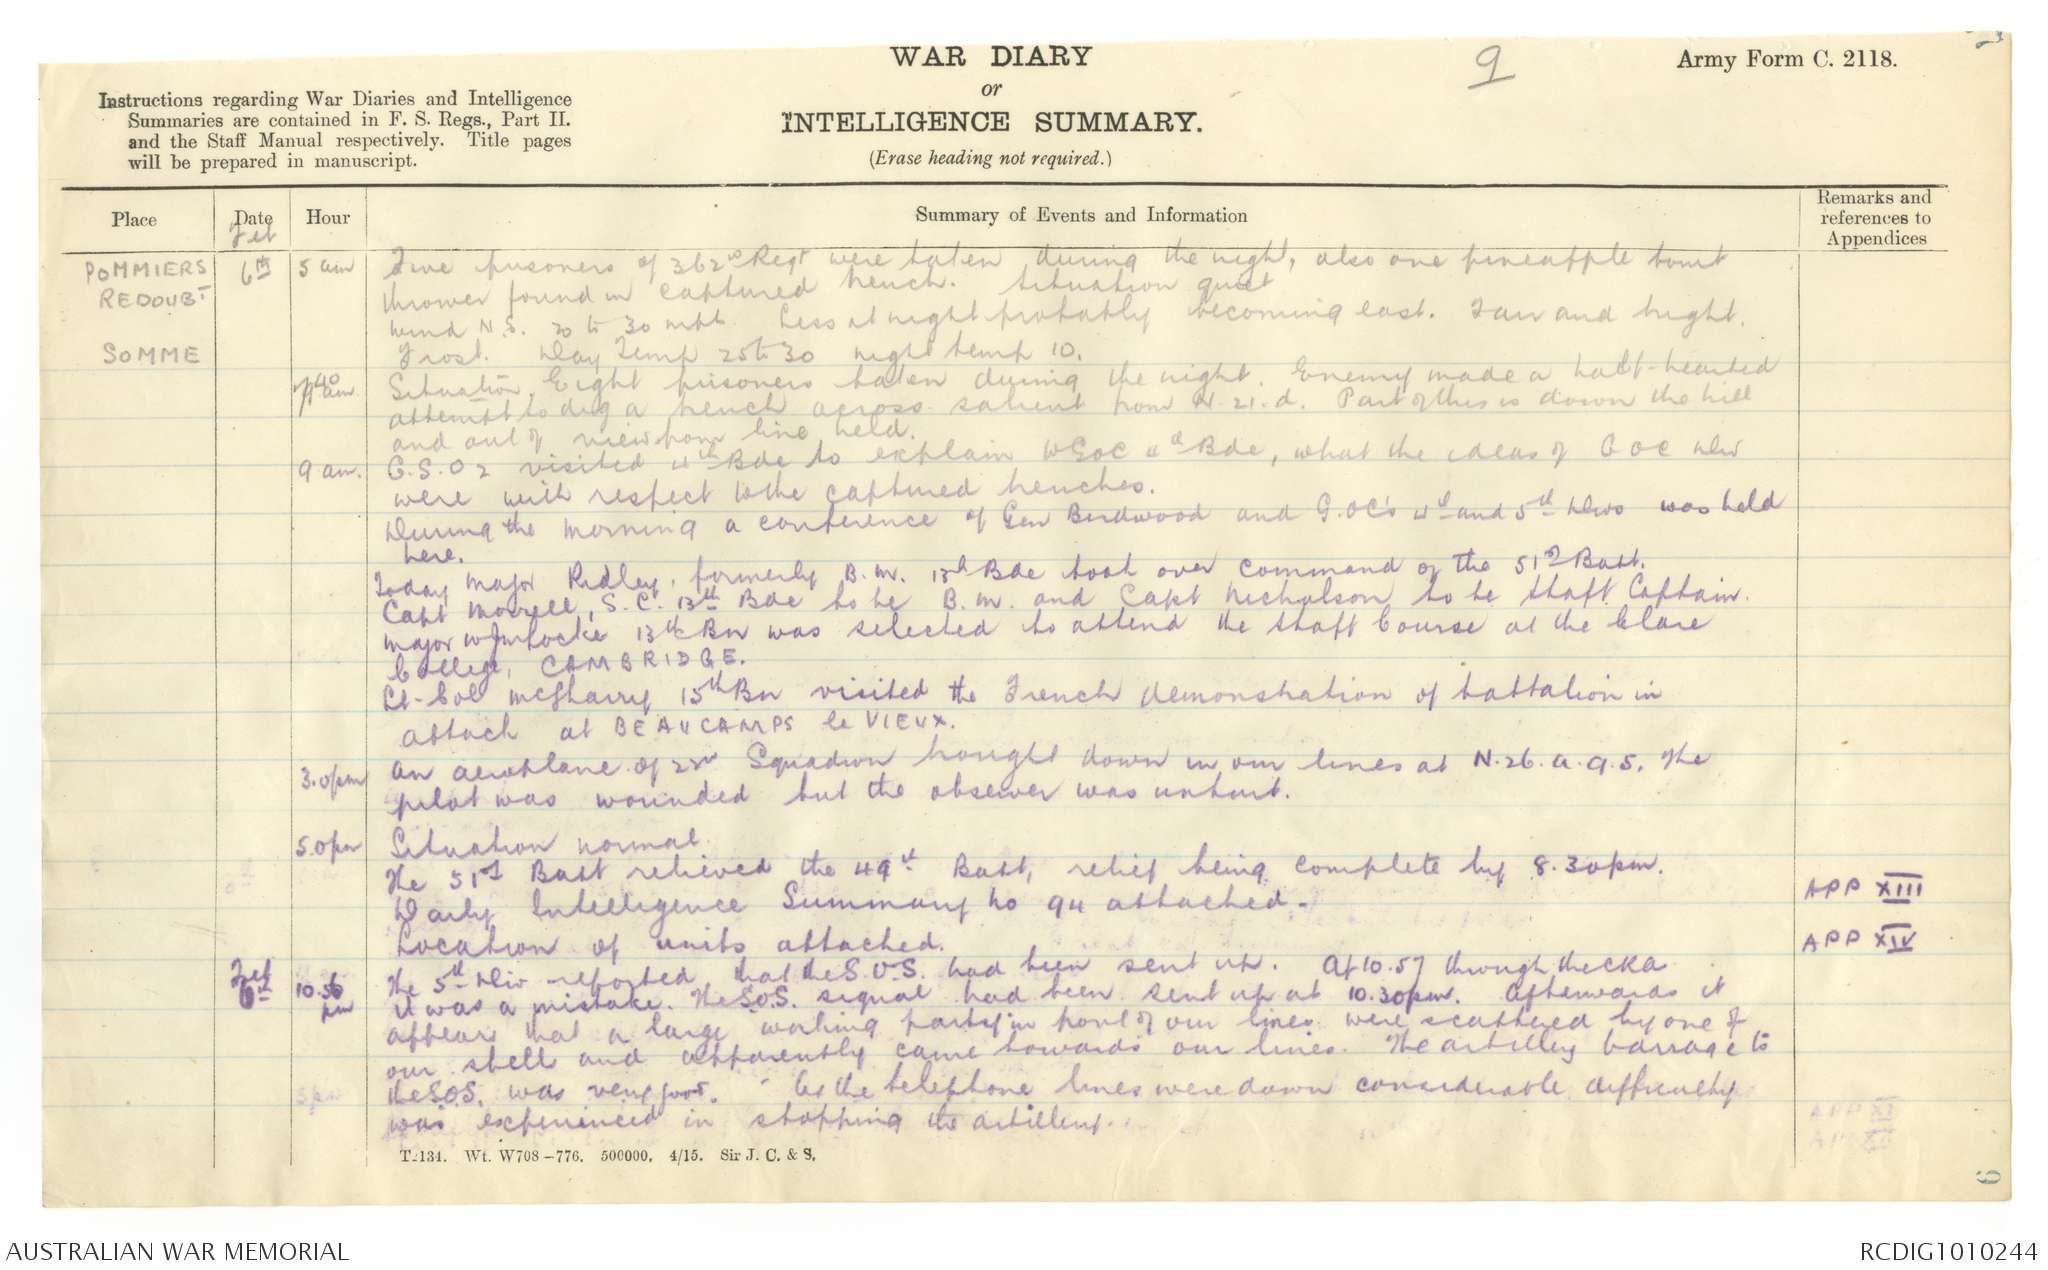 WAR DIARY
or
INTELLIGENCE SUMMARY.
(Erase heading not required.)
9
Army Form C. 2118.
Instructions regarding War Diaries and Intelligence
Summaries are contained in F. S. Regs., Part II.
and the Staff Manual respectively. Title pages
will be prepared in manuscript.
Place
Date
Hour
Summary of Events and Information
Remarks and
references to
Appendices
Feb
POMMIERS 6th 5 am Five prisoners of 362nd Regt were taken during the night, also one pineapple bomb
REDOUBT thrower found in captured trench. Situation quiet
Wind N.E. 20 to 30 mph. Less at night probably becoming east. Fair and bright.
SOMME Frost. Day Temp 25 to 30 night temp 10.
7.40 am Situation. Eight prisoners taken during the night. Enemy made a half-hearted
attempt to dig a trench across salient from N.21.d. Part of this is down the hill
and out of view from line held.
9 am. G.S.O 2 visited 4th Bde to explain to GOC 4th Bde, what the ideas of GOC Div
were with respect to the captured trenches.
During the morning a conference of Gen Birdwood and G.OC's 4th and 5th Divs was held
here.
Today Major Ridley, formerly B.M. 13th Bde took over command of the 51st Batt.
Capt Morell, S.C. 13th Bde to be B.M. and Capt Nicholson to be Staff Captain.
Major Locke 13th Bn was selected to attend the Staff Course at the Clare
College, CAMBRIDGE.
Lt-Col McSharry 15th Bn visited the French demonstration of battalion in
attack at BEAUCAMPS le VIEUX.
3.0pm An aeroplane of 22nd Squadron brought down in our lines at N.26.a.9.5. The
pilot was wounded but the observer was unhurt.
5.0pm Situation normal.
The 51st Batt relieved the 49th Batt, relief being complete by 8.30pm.
Daily Intelligence Summary No 94 attached. APP XIII
Location of units attached. APP XIV
Feb 6th 10.56 pm The 5th Div reported that the S.O.S. had been sent up. At 10.57 through the CRA
it was a mistake. The S.O.S. signal had been sent up at 10.30pm. Afterwards it
appears that a large working party in front of our lines were scattered by one of
our shells and apparently came towards our lines. The artillery barrage to
the S.O.S. was very good. As the telephone lines were down considerable difficulty
was experienced in stopping the artillery.
T-134. Wt. W708-776. 500000. 4/15. Sir J. C. & S.
6
AUSTRALIAN WAR MEMORIAL
RCDIG1010244